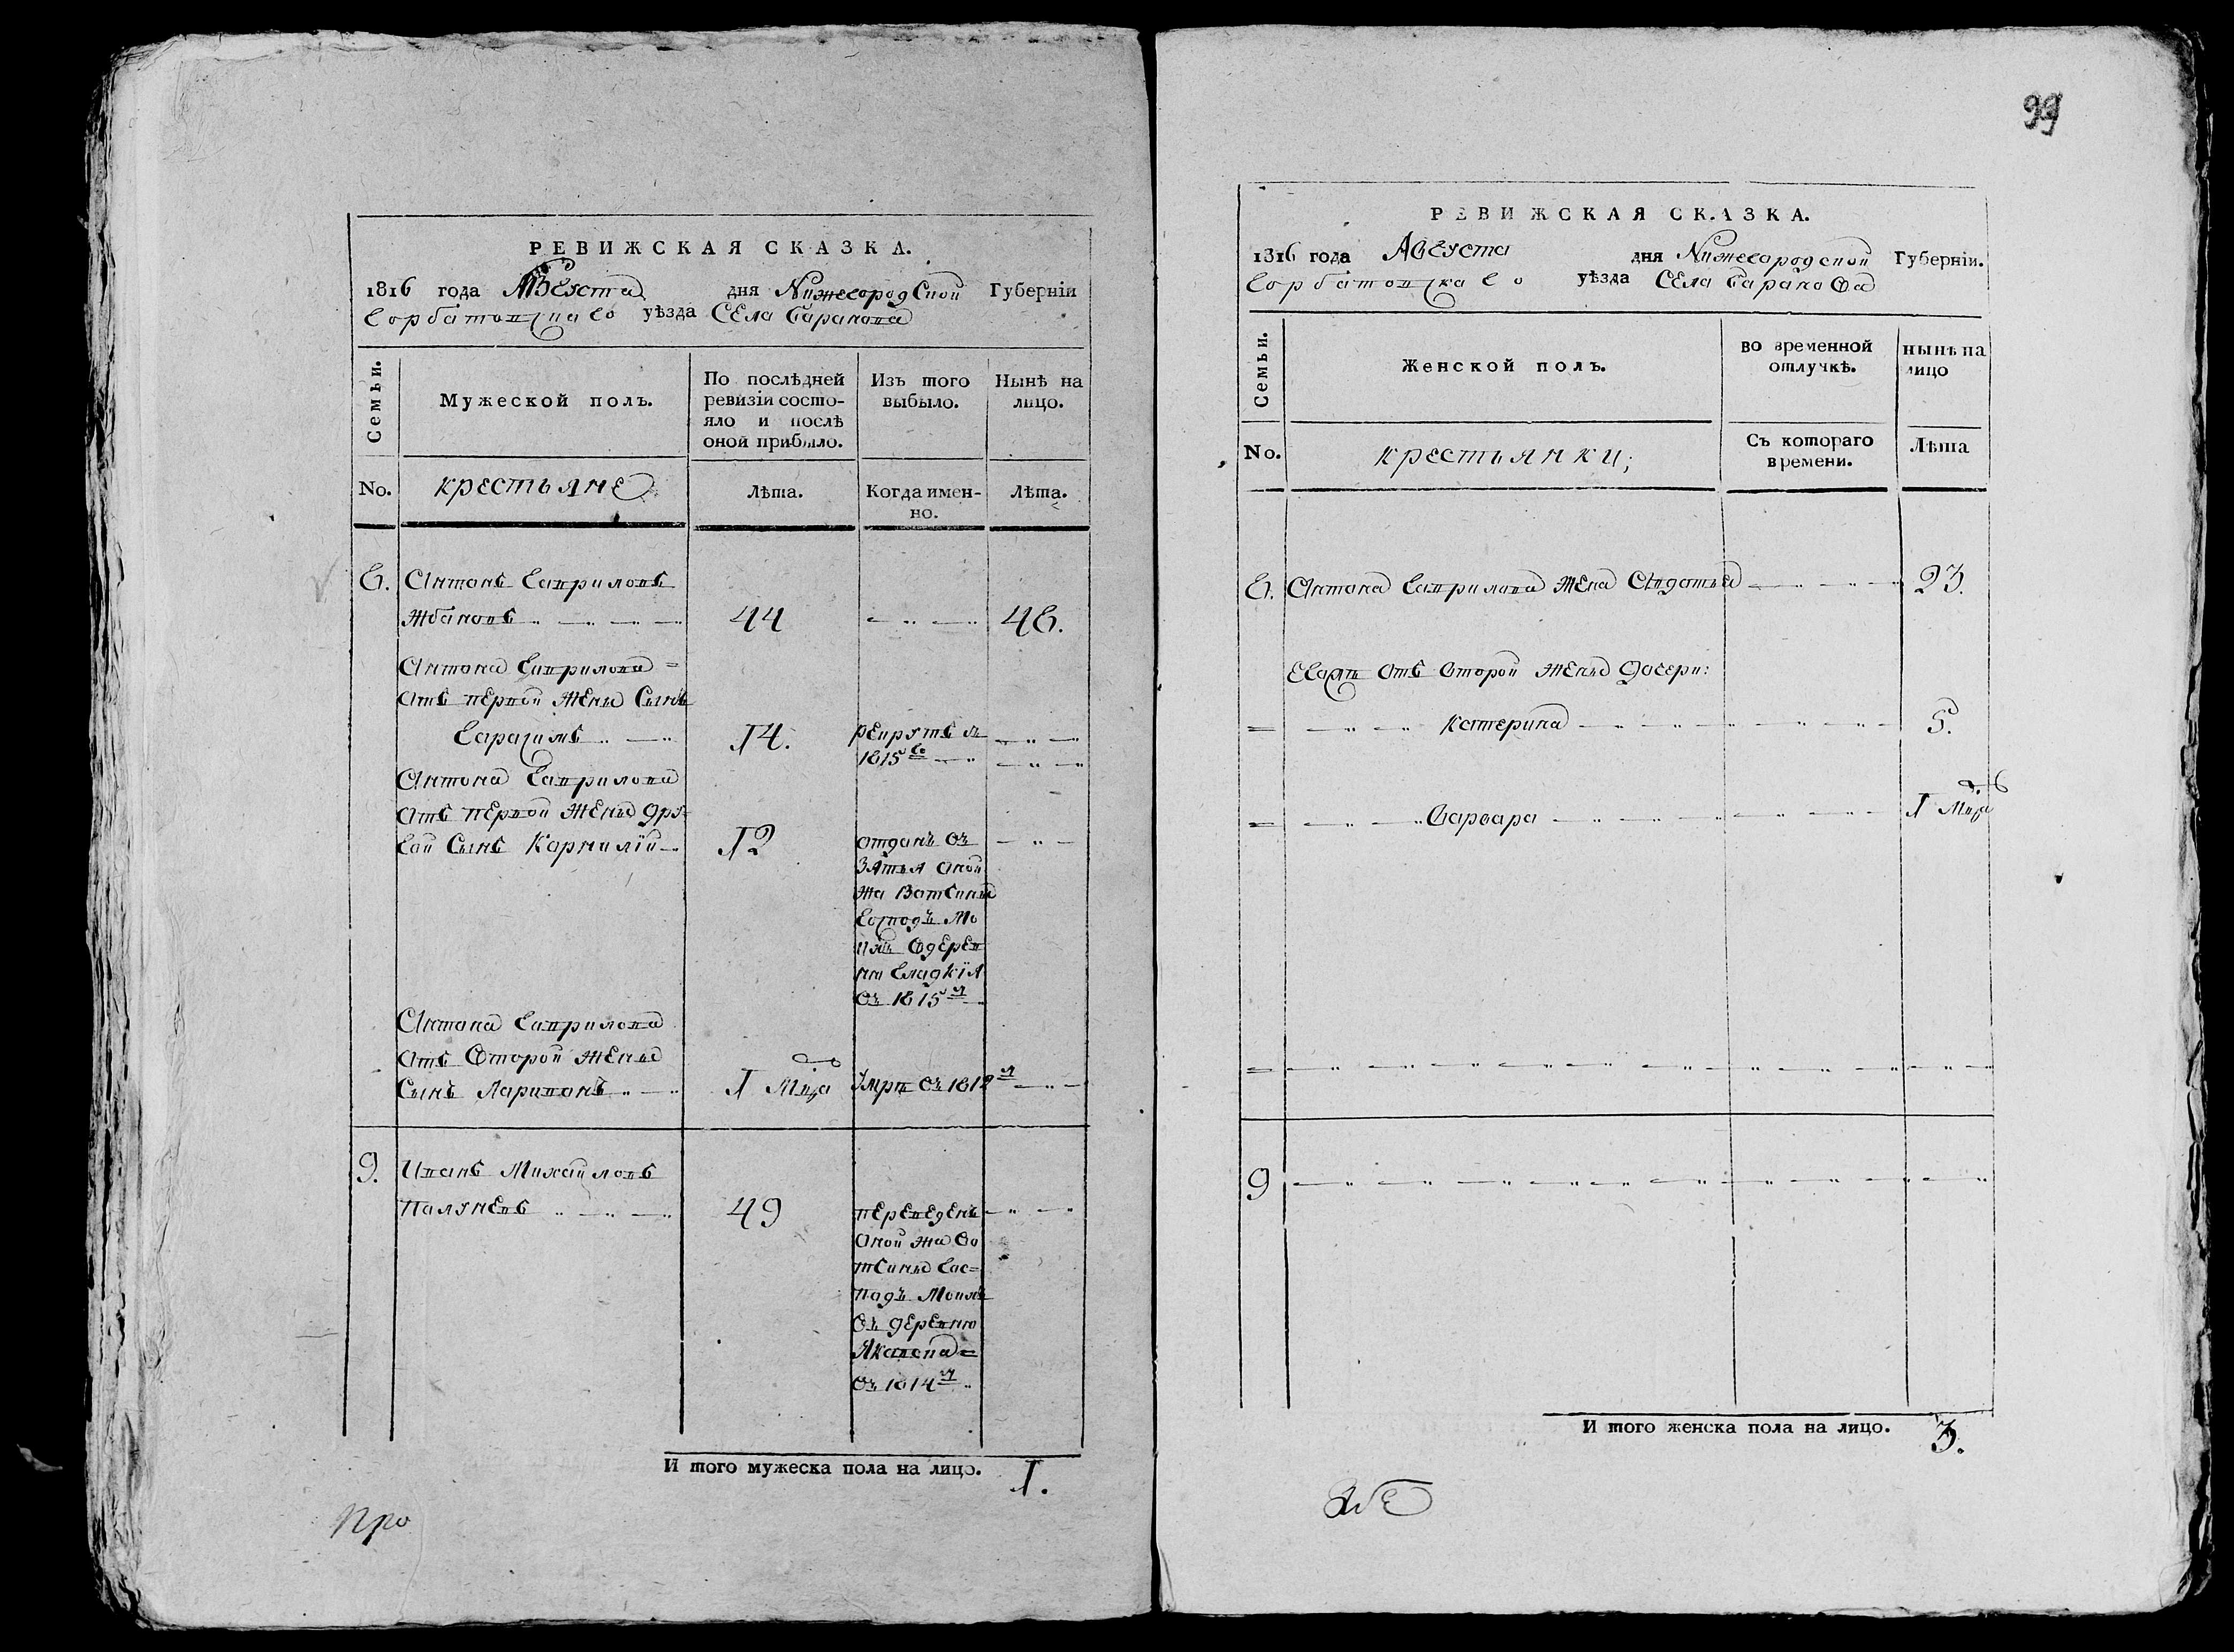 РЕВИЖСКАЯ СКАЗКА.
1816 года Августа дня Нижегородской Губерніи
Горбатовскаго уѣзда Села Баранова
Семьи. Мужеской полъ. По послѣдней ревизіи состояло и послѣ оной прибыло. Изъ того выбыло. Нынѣ на лицо.
No. крестьяне Лѣта. Когда именно. Лѣта.
8. Антонъ Гавриловъ
Жбановъ 44 46.
Антона Гаврилова
отъ первой жены сынъ
Гарасимъ 14. рекрутъ въ
1815го
Антона Гаврилова
отъ первой жены дру-
гой сынъ Корнилій 12 отданъ въ
зятья оной
жа вотчины
господъ мо
ихъ вдерев
ню Гладкія
въ 1815м
Антона Гаврилова
отъ второй жены
сынъ Ларионъ 1 м-ца умре въ 1812м
9. Иванъ Михайловъ
Палуневъ 49 переведенъ
оной жа во
тчины гос=
подъ моихъ
въ деревню
въ 1814м
И того мужеска пола на лицо. 1.
про
99
РЕВИЖСКАЯ СКАЗКА.
1816 года Августа дня Нижегородской Губерніи.
Горбатовскаго уѣзда Села Баранова
Семьи. Женской полъ. во временной отлучкѣ. нынѣ на лицо
No. крестьянки; Съ котораго времени. Лѣта
8. Антона Гаврилова жена Авдотья 23.
Еваять отъ второй жены дочери:
Катерина 5.
Варвара 1 м-ца
9
И того женска пола на лицо. 3.